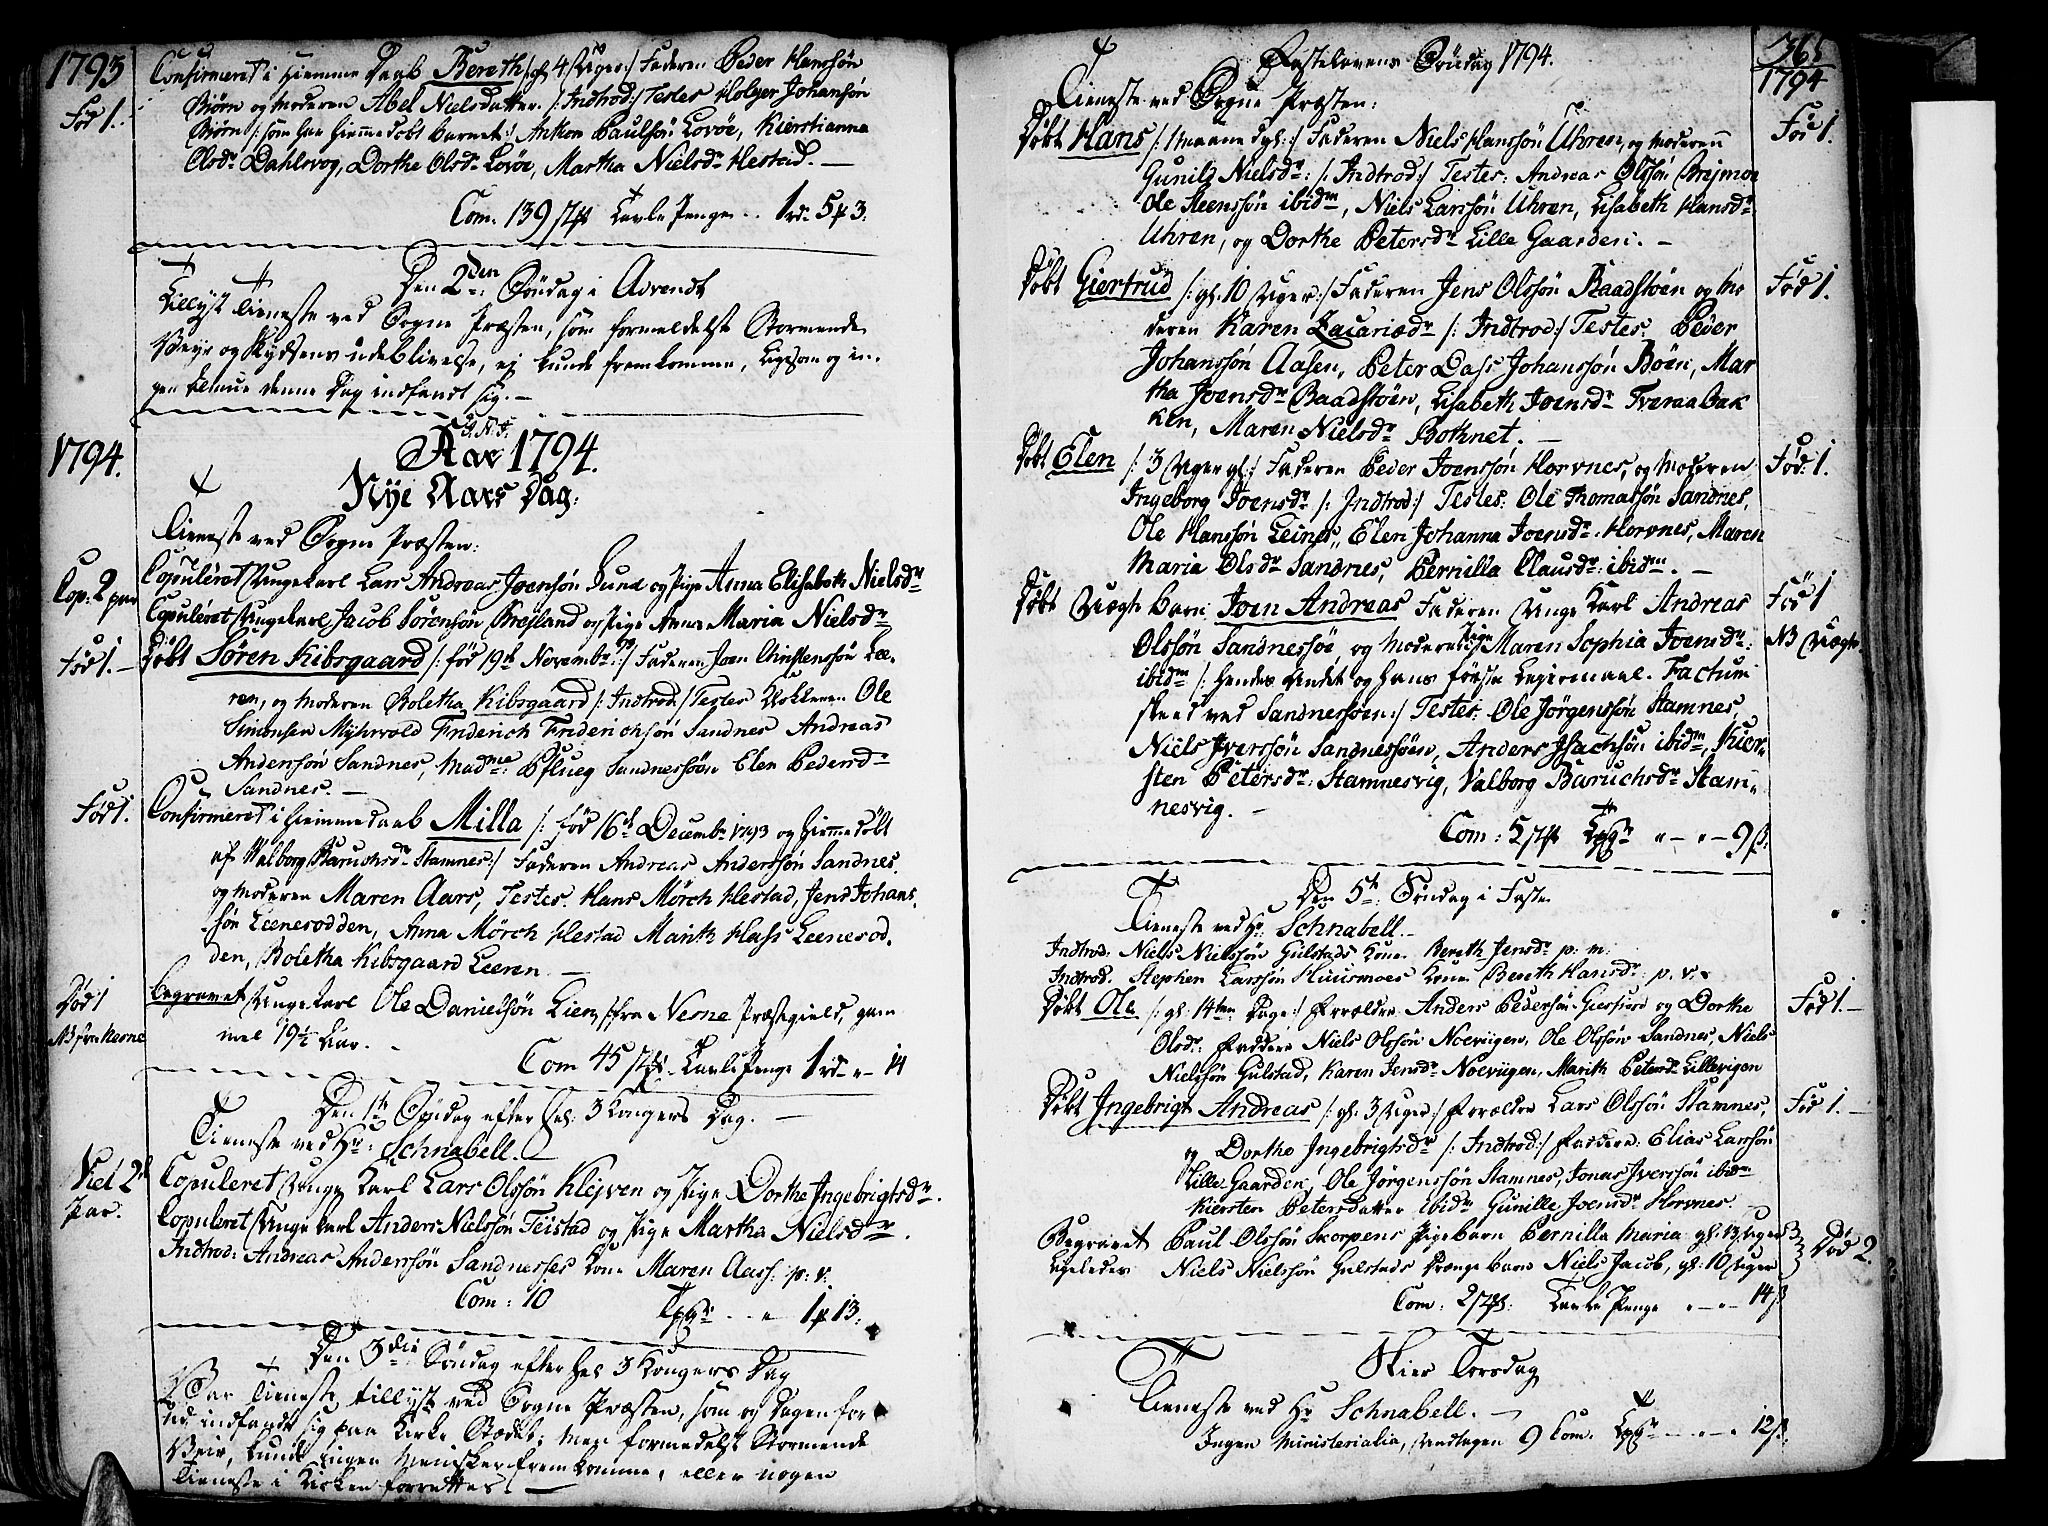 1793
Confirmeret i Hiemme Daab Bereth /: gl. 4 Uger :/ Faderen Peder Hansøn
Fød 1.
Biørn og Moderen Abel Nielsdatter. /: Introd :/ Testes Holger Johansøn
Biørn /: som har hiemmedøbt barnet :/ Anton Paulsøn Lovøe, Kierstianna
Olsdr Dahlsvog, Dorthe Olsdr Lovøe, Martha Nielsdr Hestad. —
Com. 139 Stk Tavle Penge .. 1 rd. 5 # 3:
Den 2den Søndag i Advendt
Tillyst Tieneste ved Sogne Præsten, som formedelst Stormende
Veyr og Skydsens udeblivelse, ej kunde fremkomme, ligesom og in-
gen Almue denne Dag indfandt sig. —
I. N. J.
1794.
Aar 1794.
Nye Aars Dag:
Tieneste ved Sogne Præsten:
Cop: 2 par
Copuleret Ungekarl Lars Andreas Joensøn Sund og Pige Anna Elisabeth Nielsdr
Copuleret Ungekarl Jacob Sørensøn Bresland og Pige Anna Maria Nielsdr
Fød 1. —
Døbt Søren Kibsgaard /: fød 19de Novembr: 93 :/ Faderen Joen Christensøn Lee-
ren, og Moderen Boletha Kibsgaard /: Indtrod :/ Testes Klokkeren Ole
Simonsen Myhrvold Friderich Friderichsøn Sandnes Andreas
Andersøn Sandnes, Madme: Pflueg Sandnessøen Elen Pedersdr
Sandnes. —
Fød 1.
Confirmeret i Hiemmedaab Milla /: fød 16de Decembr 1793 og hiemmedøbt
af Valborg Baruchsdr Stamnes :/ Faderen Andreas Anderssøn Sandnes
og Moderen Maren Aars, Testes. Hans Mørch Hestad, Jens Johan-
søn Leenesodden, Anna Mørch Hestad Marith Hass Leenesod-
den, Boletha Kibsgaard Leeren —
Død 1
NB fra Nesne
Begravet Ungekarl Ole Danielsøn Lien, fra Nesne Præstegield, gam-
mel 19½ Aar. —
Com 45 Stk. Tavle Penge 1 rd - " - 14
Den 1ste Søndag efter Hel: 3 Kongers Dag. —
Tieneste ved Hr: Schnabell.
Viet 2de
Par.
Copuleret Unge Karl Lars Olssøn Klejven og Pige Dorthe Ingebrigtsdr.
Copuleret Unge Karl Anders Nielssøn Teistad og Pige Martha Nielsdr.
Indtrod: Andreas Anderssøn Sandnesses Kone Maren Aars: p: v:
Com: 10 TPge: .. " 1 # 13.
Den 3die Søndag efter Hel 3 Kongers Dag
Var Tieneste tillyst ved Sogne Præsten, som og Dagen for
ud indfandt sig paa Kirke Stædet; men formedelst Stormende
Veir, kunde ingen Mennisker fremkomme, eller nogen
Tieneste i Kirken forrettes. —
365
1794
Fastelavens Søndag 1794.
Tieneste ved Sogne Præsten:
Døbt Hans /: 1 Maaned gl: :/ Faderen Niels Hanssøn Uhren, og Moderen
Fød 1.
Gunild Nielsdr: /: Indtrod :/ Testes: Andreas Olssøn Brejmoe
Ole Steenssøn ibidm, Niels Larssøn Uhren, Lisabeth Hansdr
Uhren, og Dorthe Petersdr Lille Gaarden. —
Døbt Giertrud /: gl: 10 Uger :/ Faderen Jens Olssøn Baadstøen og Mo
Fød 1.
deren Karen Zacariædr /: Indtrod :/ Testes. Peder
Johanssøn Aasen, Peter Dass Johanssøn Boen, Mar
tha Joensdr Baadstøen, Lisabeth Joensdr Tveraabak
ken, Maren Nielsdr Bothnet. —
Døbt Elen /: 3 Uger gl: :/ Faderen Peder Joenssøn Horvnes, og Moderen
Fød: 1.
Ingeborg Joensdr /: Indtrod :/ Testes: Ole Thomassøn Sandnes,
Ole Hanssøn Leines, Elen Johanna Joensdr: Horvnes, Maren
Maria Olsdr Sandnes, Pernilla Clausdr: ibidm. —
Døbt Uægte Barn Joen Andreas Faderen Unge Karl Andreas
Fød 1
NB Uægte
Olssøn Sandnessøe og Moderen Pige Maren Sophia Joensdr:
ibidm /: hendes andet og hans første Leiermaal. Factum
skeed ved Sandnessøen :/ Testes: Ole Jørgenssøn Stamnes,
Niels Iverssøn Sandnessøen, Anders Isachsøn ibidm, Kier-
sten Petersdr: Stamnesvig, Valborg Baruchsdr Stam-
nesvig. —
Com: 5 Stk TPge " - " - 9 ß.
Den 5te: Søndag i Faste
Tieneste ved Hr: Schnabell. —
Indtrod: Niels Nielssøn Gulstads Kone Bereth Jensdr p: v:
Indtrod. Stephen Larssøn Huusmoes Kone Bereth Hansdr: p. v.
Døbt Ole /: gl: 14ten Dage :/ Forældre Anders Pedersøn og Dorthe
Fød 1. —
Olsdr: Faddere Niels Olssøn Noeviigen, Ole Olssøn Sandnes, Niels
Nielssøn Gulstad, Karen Jensdr Noeviigen, Marith Petersdr Lillevigen
Døbt Ingebrigt Andreas /: gl: 3 Uger :/ Forældre Lars Olssøn Stamnes,
Fød 1. —
og Dorthe Ingebrigtsdr /: Indtrod :/ Faddere: Elias Larssøn
Lille Gaarden, Ole Jørgenssøn Stamnes, Jonas Iverssøn ibidm
Kiersten Petersdatter ibidm Gunille Joensdr Horvnes. —
Begravet Paul Olssøn Skorpens Pigebarn Pernilla Maria gl: 13 Uger
Død 2.
Ligeledes Niels Nielssøn Gulstads Drænge barn Niels Jacob, gl: 10 Uger
Com: 2 Stk: Tavle Penge " - " - 14 ß
Skier Torsdag
Tieneste ved Hr Schnabell. —
Ingen Ministerialia, undtagen 9 Com. TPge " - " 12 ß.